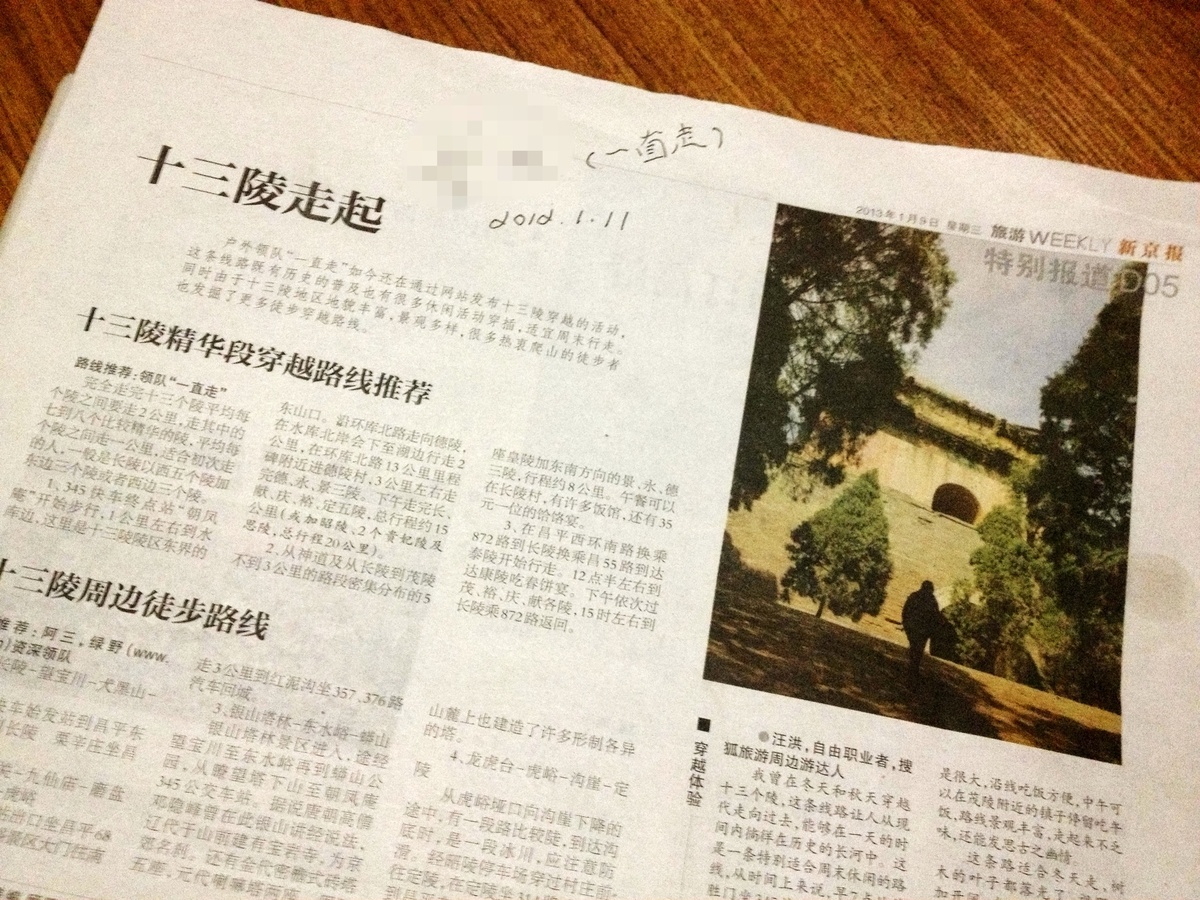 (一直走)
2012.1.11
2013年1月9日 星期三 旅游WEEKLY 新京报
特别报道 D05
十三陵走起
户外领队“一直走”如今还在通过网站发布十三陵穿越的活动,
这条线路既有历史的普及也有很多休闲活动穿插,适宜周末行走。
同时由于十三陵地区地貌丰富,景观多样,很多热衷爬山的徒步者
也发掘了更多徒步穿越路线。
十三陵精华段穿越路线推荐
路线推荐:领队“一直走”
完全走完十三个陵平均每
个陵之间要走2公里,走其中的
七到八个比较精华的陵,平均每
个陵之间走一公里,适合初次走
的人,一般是长陵以西五个陵加
东边三个陵或者西边三个陵。
1、345快车终点站“朝凤
庵”开始步行,1公里左右到水
库边,这里是十三陵陵区东界的
东山口。沿环库北路走向德陵,
在水库北岸会下至湖边行走2
公里,在环库北路13公里里程
碑附近进德陵村,3公里左右走
完德、永、景三陵。下午走完长、
献、庆、裕、定五陵,总行程约15
公里(或加昭陵、2个贵妃陵及
思陵,总行程20公里)。
2、从神道及从长陵到茂陵
不到3公里的路段密集分布的5
座皇陵加东南方向的景、永、德
三陵,行程约8公里。午餐可以
在长陵村,有许多饭馆,还有35
元一位的饸饹宴。
3、在昌平西环南路换乘
872路到长陵换乘昌55路到达
泰陵开始行走。12点半左右到
达康陵吃春饼宴。下午依次过
茂、裕、庆、献各陵,15时左右到
长陵乘872路返回。
十三陵周边徒步路线
推荐:阿三,绿野(www.
)资深领队
长陵-望宝川-大黑山-
快车始发站到昌平东
到长陵 栗辛庄坐昌
-九仙庙-磨盘
-虎峪
站出口坐昌平68
景区大门往满
走3公里到红泥沟坐357、376路
汽车回城。
3、银山塔林-东水峪-蟒山
银山塔林景区进入,途经
望宝川至东水峪再到蟒山公
园,从瞭望塔下山至朝凤庵
345公交车站。据说唐朝高僧
邓隐峰曾在此银山讲经说法,
辽代于山前建有宝岩寺,为京
郊名刹。还有金代密檐式砖塔
五座,元代喇嘛塔两座,
山麓上也建造了许多形制各异
的塔。
4、龙虎台-虎峪-沟崖-定
陵
从虎峪垭口向沟崖下降的
途中,有一段路比较陡,到达沟
底时,是一段冰川,应注意防
滑。经昭陵停车场穿过村庄前
在定陵,在定陵坐314路
■穿越体验
●汪洪,自由职业者,搜
狐旅游周边游达人
我曾在冬天和秋天穿越
十三个陵,这条线路让人从现
代走向过去,能够在一天的时
间内徜徉在历史的长河中。这
是一条特别适合周末休闲的路
线,从时间上来说,早7点
是很大,沿线吃饭方便,中午可
以在茂陵附近的镇子停留吃午
饭,路线景观丰富,走起来不乏
味,还能发思古之幽情。
这条路适合冬天走,树
木的叶子都落光了,